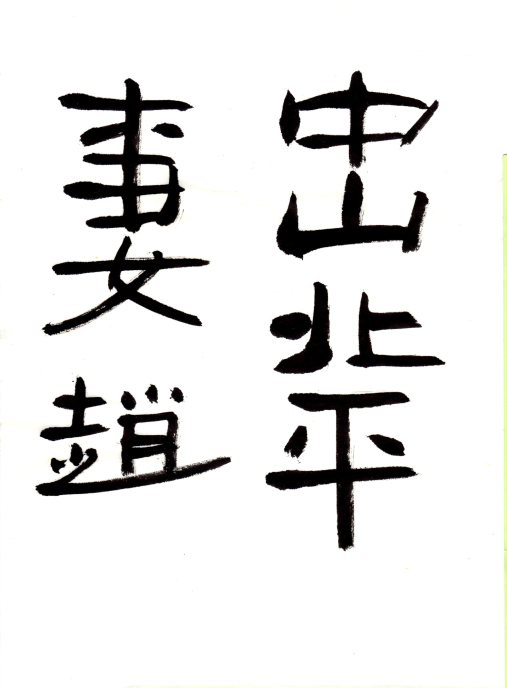 出北平
妻趙